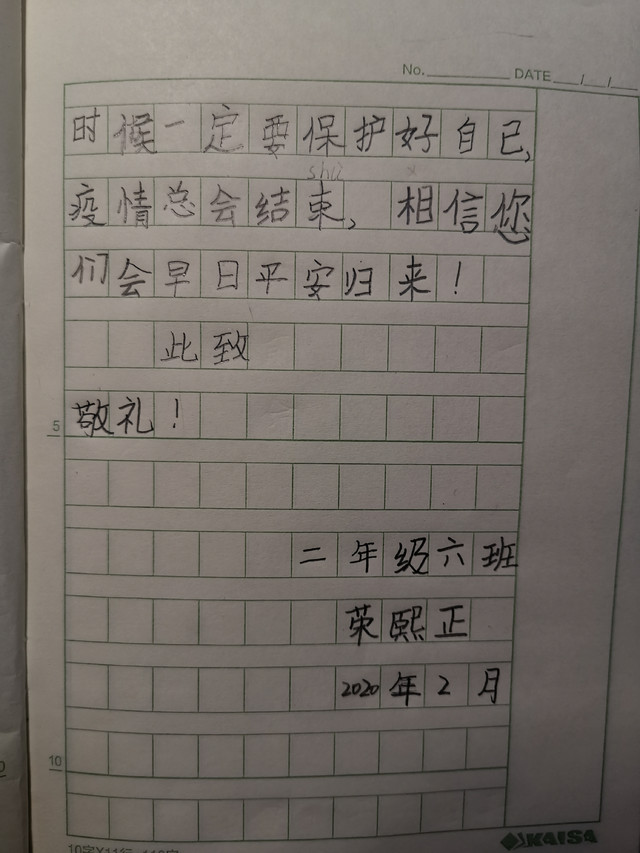 No. DATE / /
时候一定要保护好自己,
shù
疫情总会结束,相信您
们会早日平安归来!
此致
5
敬礼!
二年级六班
荣熙正
2020年2月
10
KAISA